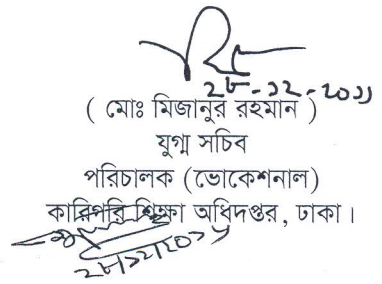 ২৮-১২-২০১১
( মোঃ মিজানুর রহমান )
যুগ্ম সচিব
পরিচালক (ভোকেশনাল)
কারিগরি শিক্ষা অধিদপ্তর, ঢাকা।